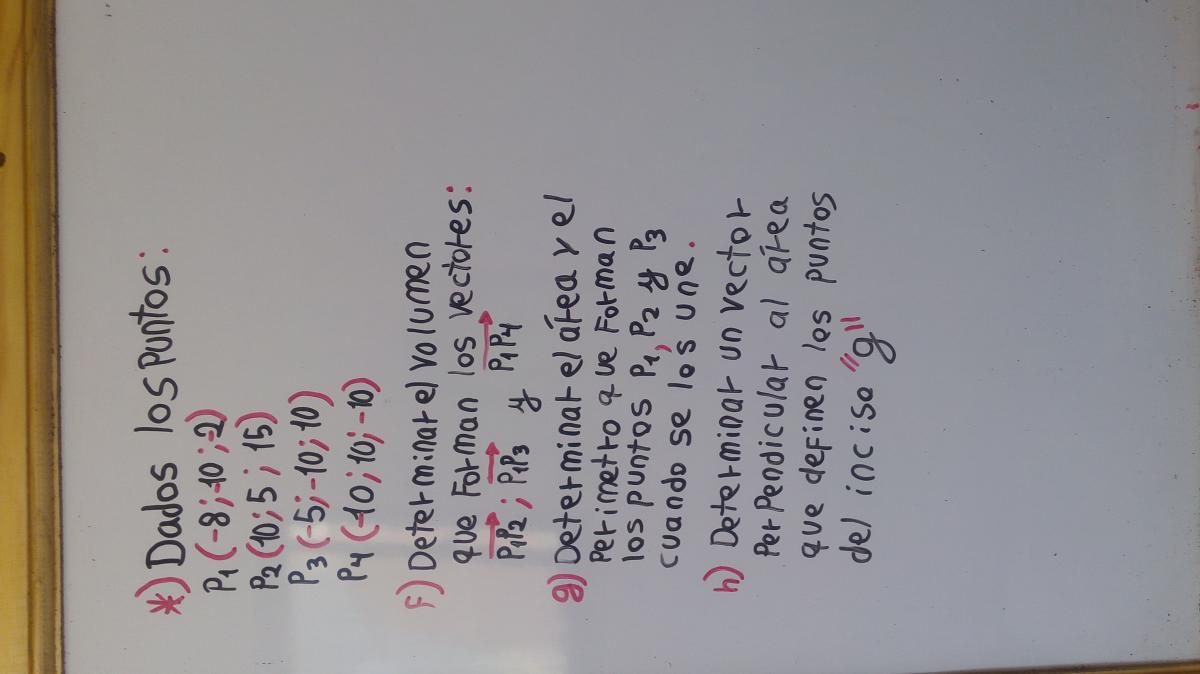 *) Dados los puntos:
P1 (-8;-10;-2)
P2 (10;5;15)
P3 (-5;-10;10)
P4 (-10;10;-10)
F) Determinar el volumen
que Forman los vectores:
P1P2 ; P1P3 y P1P4
g) Determinar el área y el
Perímetro que Forman
los puntos P1, P2 y P3
cuando se los une.
h) Determinar un vector
PerPendicular al área
que definen los puntos
del inciso "g"